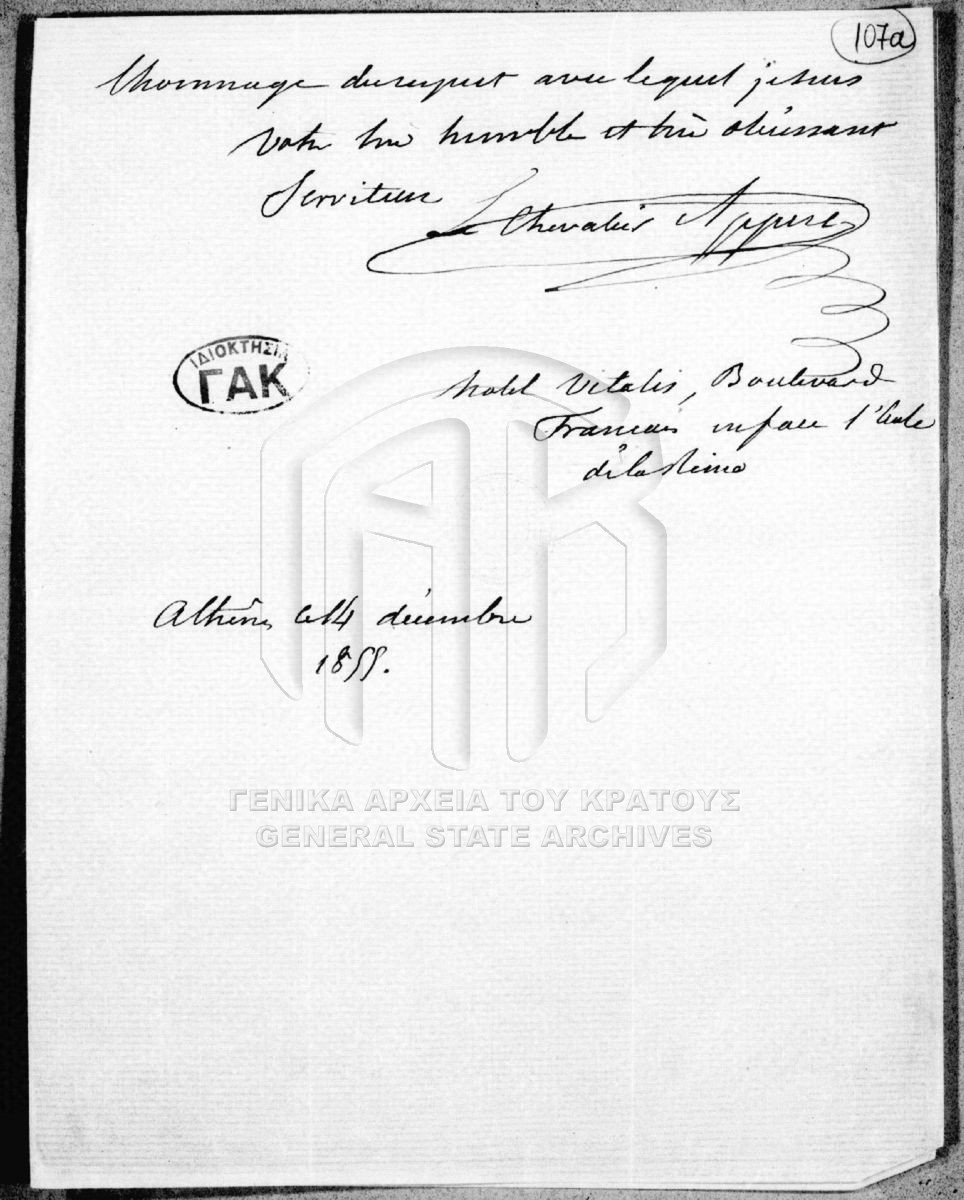 107a
l'hommage du respect avec lequel je suis
Votre tres humble et tres obéissant
Serviteur
Le Chevalier Appert
ΙΔΙΟΚΤΗΣΙΑ
ΓΑΚ
hotel Vitalis, Boulevard
Francais en face l'
de la Reine
Athènes le 14 décembre
1855.
ΓΕΝΙΚΑ ΑΡΧΕΙΑ ΤΟΥ ΚΡΑΤΟΥΣ
GENERAL STATE ARCHIVES